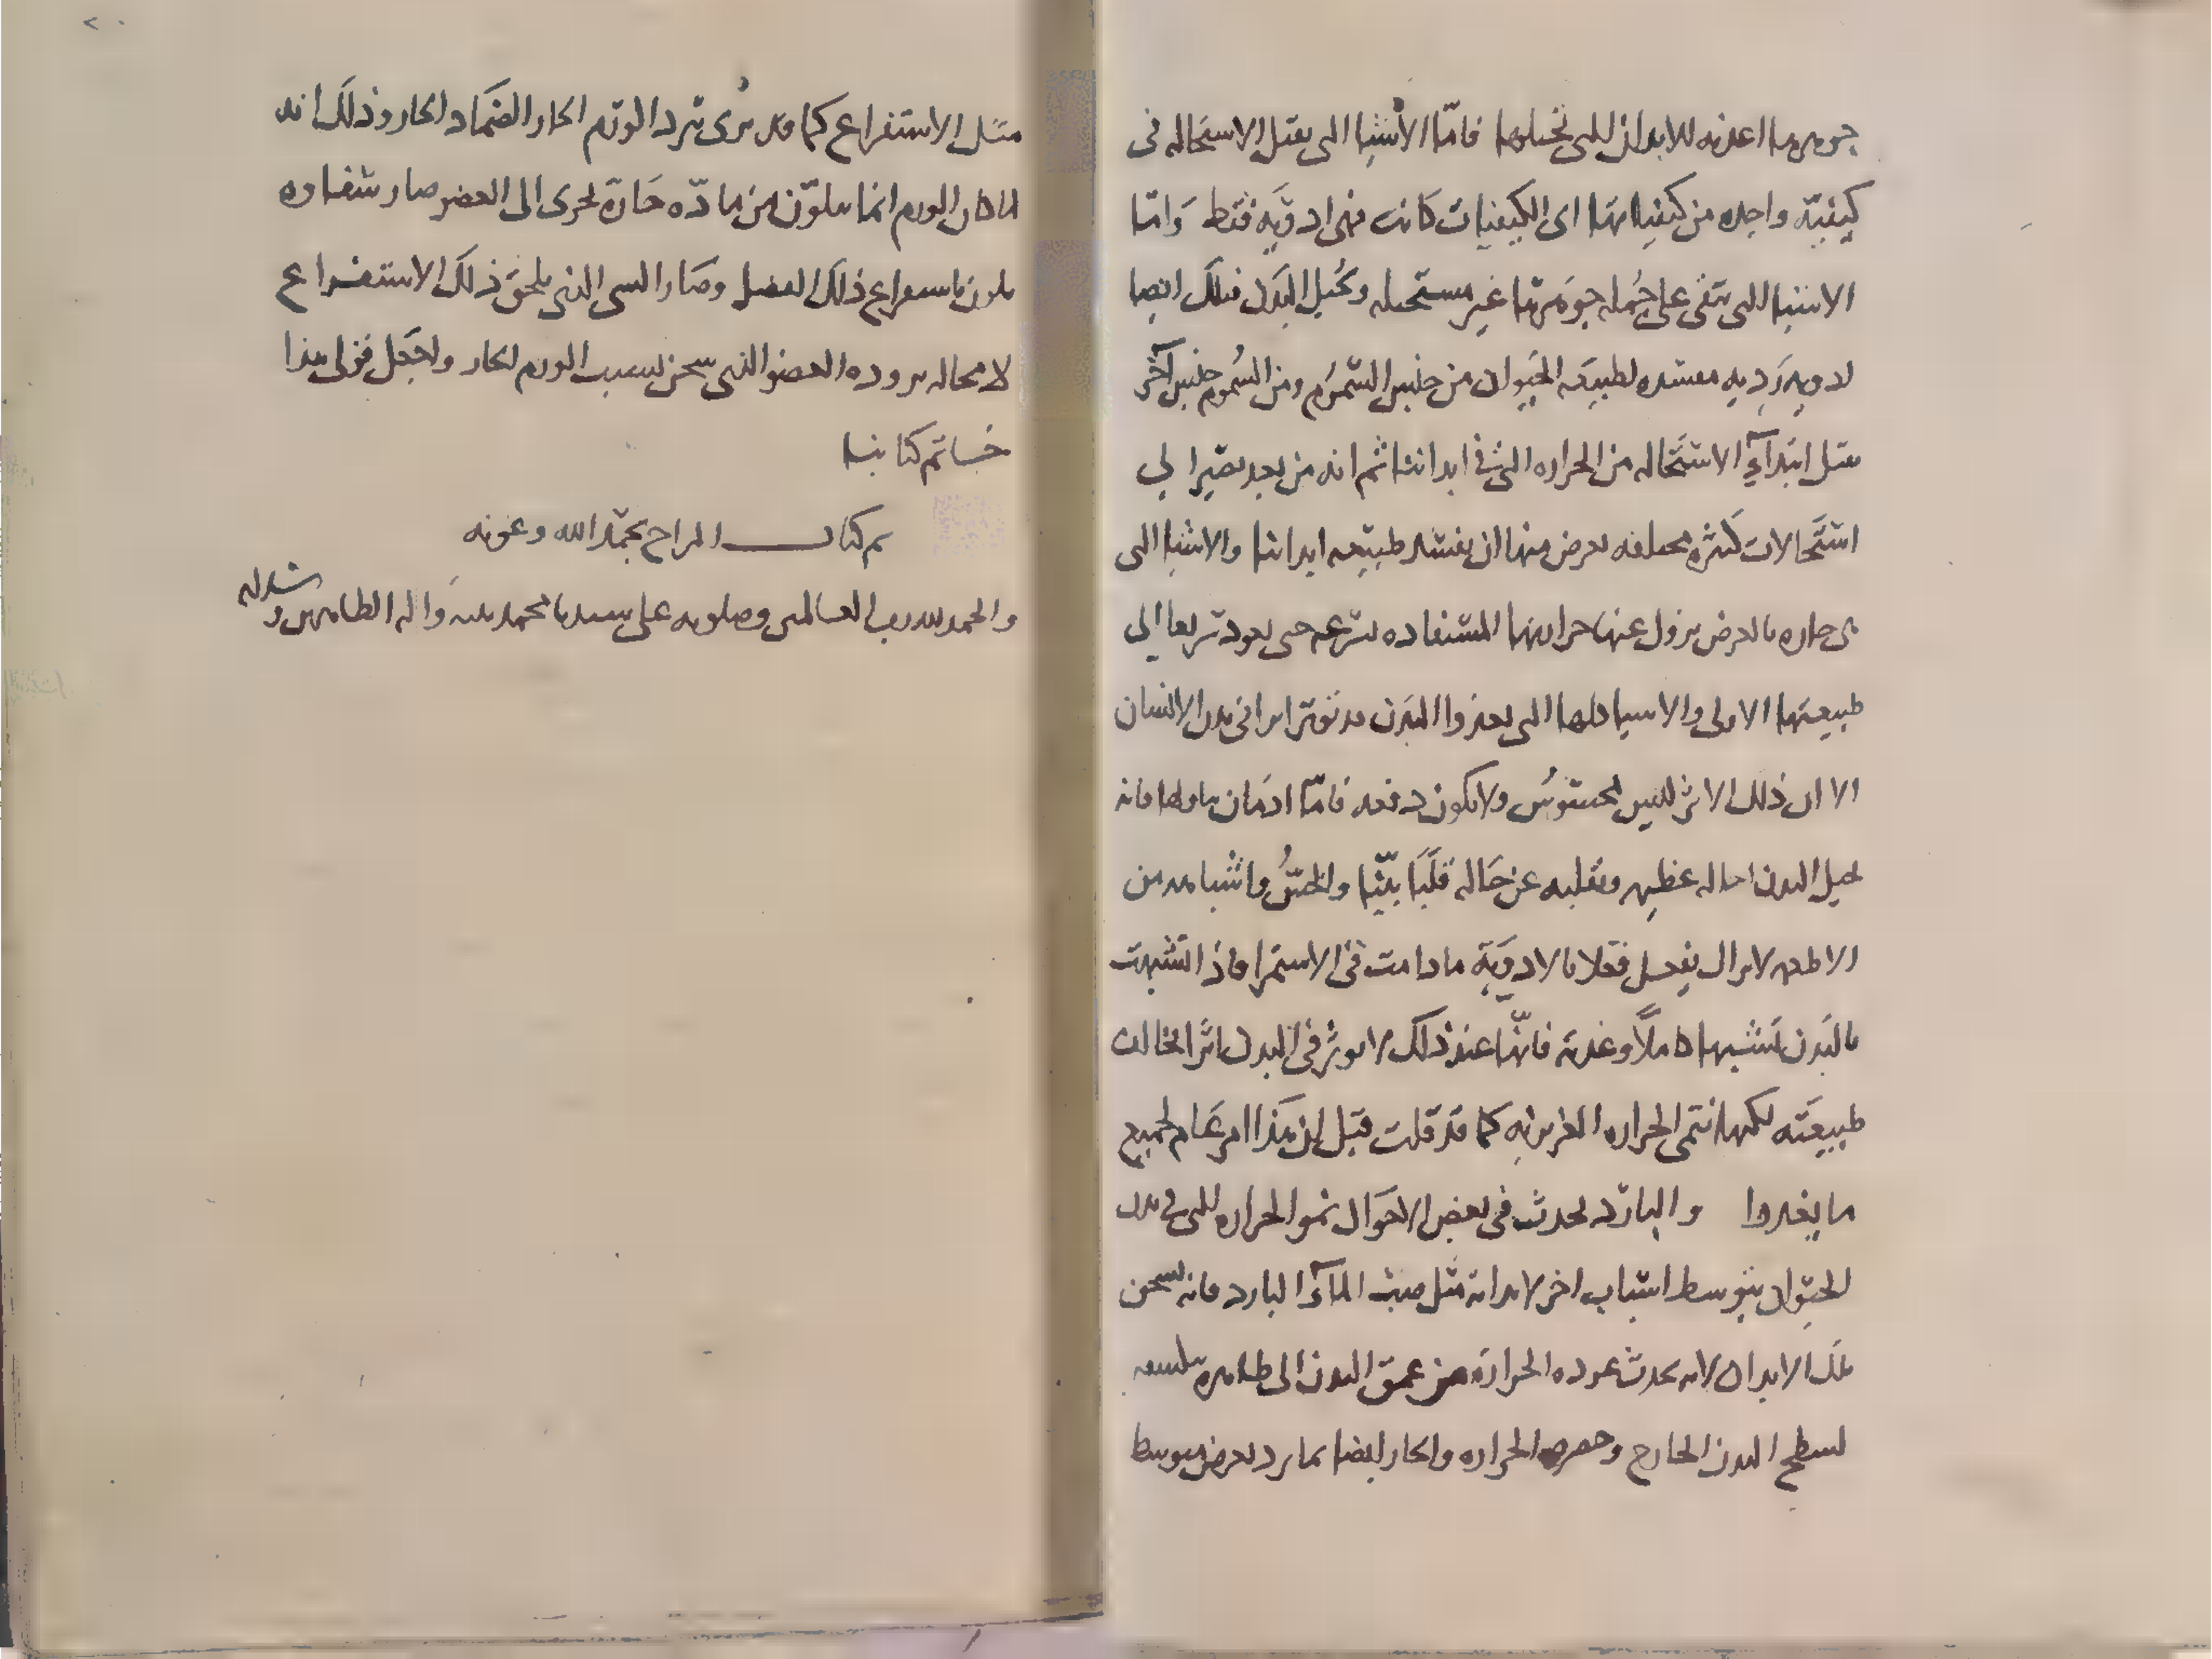 جوهرها اغذيه للابدان التى تحيلها فامّا الأشيا التى يقبل الاستحاله فى
كيفيّة واحده من كيفياتها اى الكيفيات كانت فهى ادويَه فقط وَامّا
الاشيا التى تبقى على جُمله جوهَرها غير مستحيله وتُحيل البَدَن فتلكَ ايضا
ادويه رَديه مفسده لطبيعَه الحَيوان من جنس السّموُم ومن السُموُم جنس آخر
مثل ابتدآءِ الاستحَاله من الحراره التى فى ابداننا ثم انه من بعد يصير الي
استَحالات كَثيره مختلفه يعرض منها ان يفسد طبيعه ابداننا والاشيا التى
هى حاره بالعرض يزول عنها حرارتها المستفاده بسرعه حتى يعود سريعا الى
طبيعتها الاولى والاشيا كلها التى يغذوا البَدَن قد تؤثر اثرا فى بدن الانسان
الا ان ذلك الاثر لليس بمحسوُس ولا يكون دفعه فامّا ادمَان تناولها فانه
يحيل البدن احاله عظيمه ويقلبه عن حَاله قَلَبًا بيّنا والخسُّ واشباهه من
الاطعمه لا يزال يفعل فعلا بالادويَة ما دامت فى الاستمرا فاذا تشبهت
بالبَدن تَشبها كاملًا وغذته فانّها عند ذلكَ لا يوثر فى البدن اثرًا يخالف
طبيعَته لكنها تنمى الحراره الغريزيه كما قد قلت قبل ان هَذا امر عَام لجميع
ما يغدوا والبارد يحدث فى بعض الاحَوال نمو الحراره التى فى بدن
الحيوان بتوسط اسباب اخر لا بذاته مثل صب المآء البارد فانه يسخن
تلك الابدان لانه يحدث عوده الحراره من عمق البدن الى ظاهره
لسطح البدن الخارج وحصره الحراره والحار ايضا بما برد بعرض بتوسط
مثل الاستفراع كما قد نرى تبرد الورَم الحار الضمَاد الحار وذلك انه
لما كان الورم انما يتكوّن من مادّه حَارّة تجرى الى العضو صار شفاوه
يكون باستفراع ذلكَ الفضل وصَار الشى الذى يلحق ذلكَ الاستفراع
لا محاله بروده العضو الذى سخن بسبب الورم الحار ولنجعَل قولى هذا
خاتم كتابنا
تم كتاب المزاج بحمَد الله وعونه
والحمد لله رب العالمين وصلوته على سيدنا محمد نبيه وَاله الطاهرين و